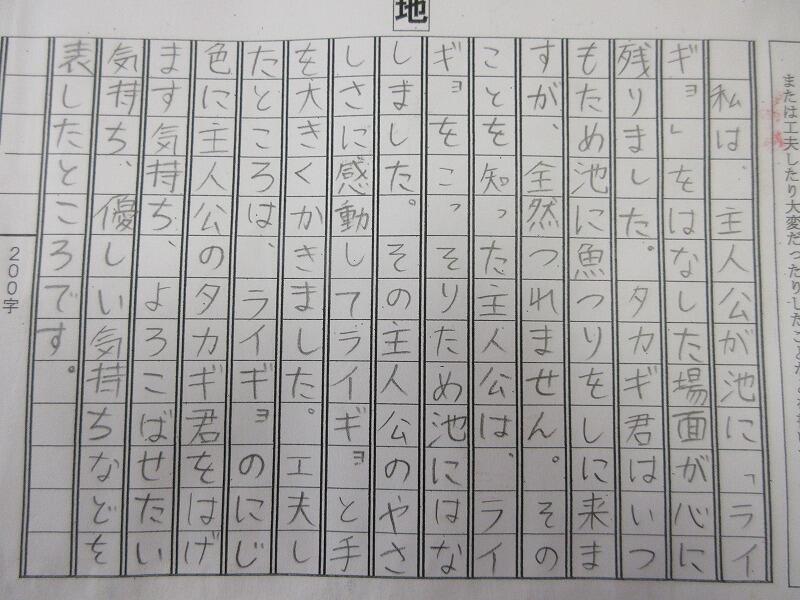 地
または工夫したり大変だったりしたことな
私は、主人公が池に「ライ
ギョ」をはなした場面が心に
残りました。タカギ君はいつ
もため池に魚つりをしに来ま
すが、全然つれません。その
ことを知った主人公は、ライ
ギョをこっそりため池にはな
しました。その主人公のやさ
しさに感動してライギョと手
を大きくかきました。工夫し
たところは、ライギョのにじ
色に主人公のタカギ君をはげ
ます気持ち、よろこばせたい
気持ち、優しい気持ちなどを
表したところです。
200字